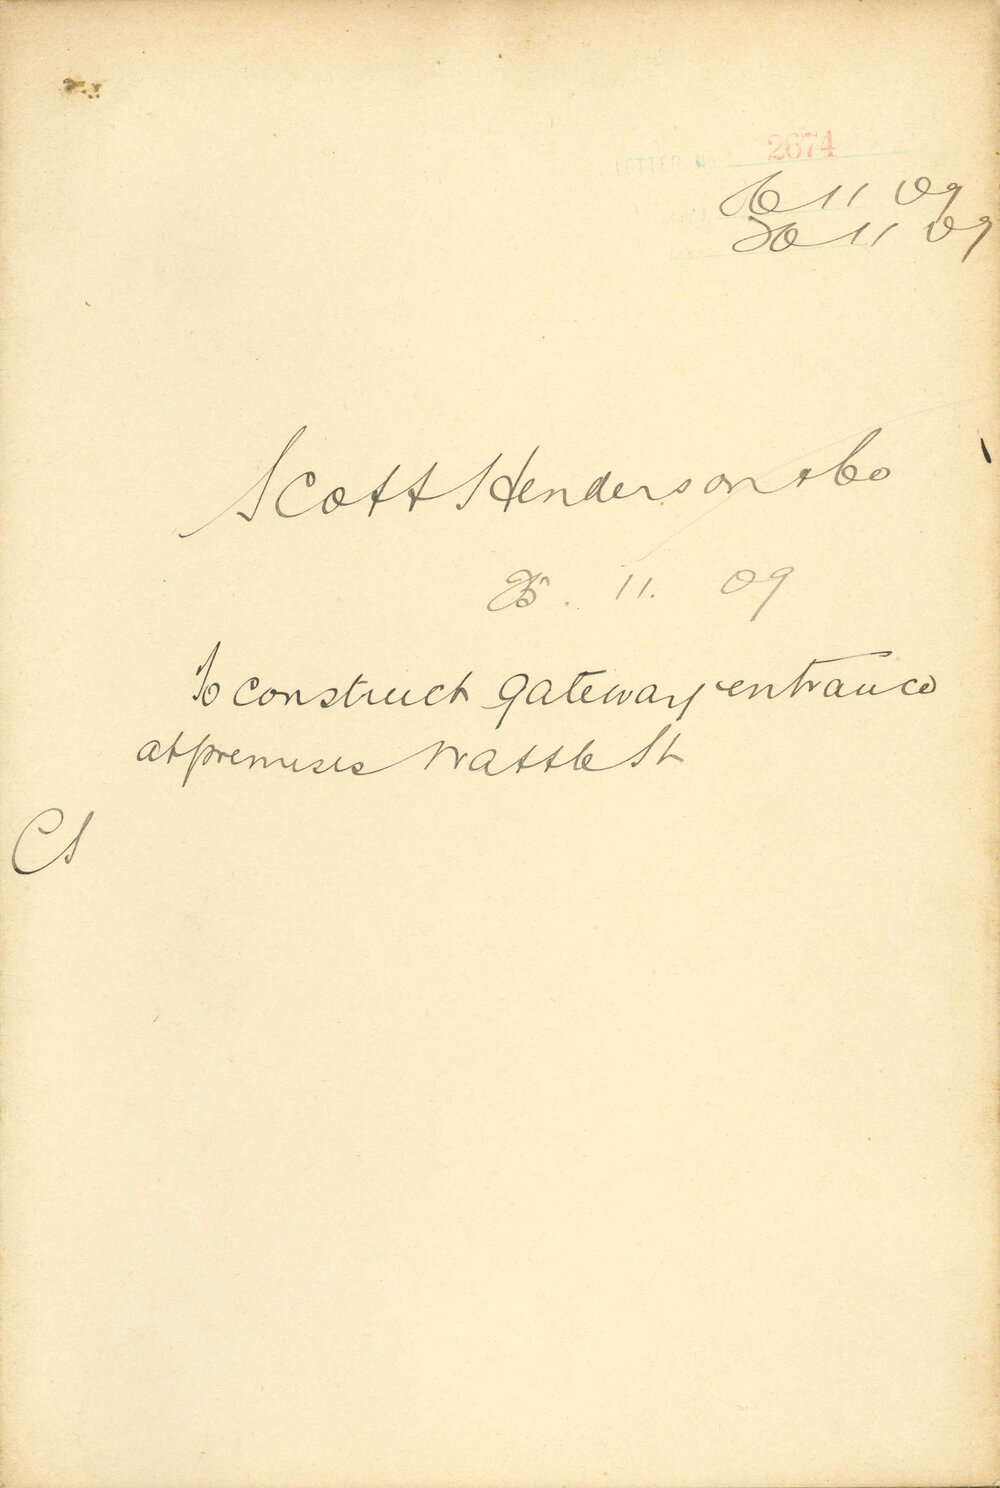 LETTER No 2674
26 11 09
30 11 09
Scott Henderson & Co
25. 11. 09
To construct gateway entrance
at premises Wattle St
CS